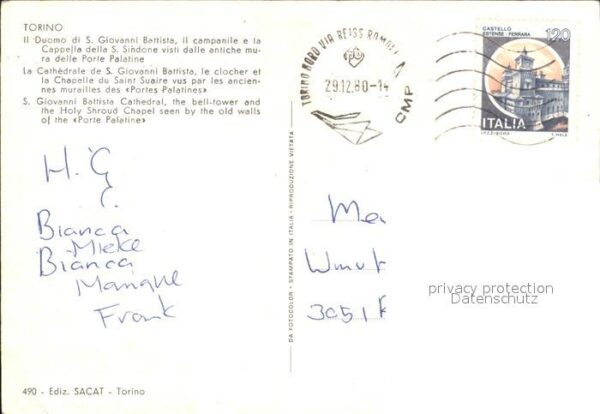 TORINO
Il Duomo di S. Giovanni Battista, il campanile e la
Cappella della S. Sindone visti dalle antiche mu-
ra delle Porte Palatine
La Cathédrale de S. Giovanni Battista, le clocher et
la Chapelle du Saint Suaire vus par les ancien-
nes murailles des «Portes Palatines»
S. Giovanni Battista Cathedral, the bell-tower and
the Holy Shroud Chapel seen by the old walls
of the «Porte Palatine»
TORINO NORD VIA REISS ROMOLI
29.12.80-14
CMP
CASTELLO
ESTENSE - FERRARA
120
ITALIA
H.G
Bianca
Mieke
Bianca
Frank
DA FOTOCOLOR - STAMPATO IN ITALIA - RIPRODUZIONE VIETATA
Ma
3051
privacy protection
Datenschutz
490 - Ediz. SACAT - Torino